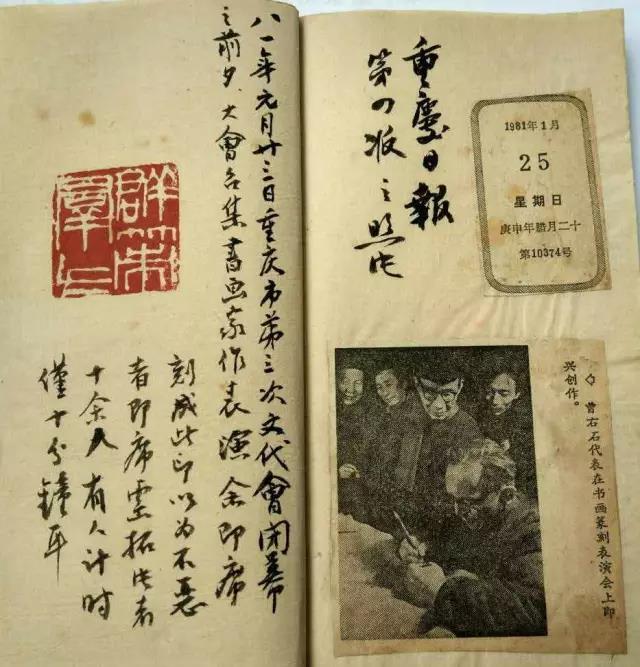 重慶日報
第四版之照片
1981年1月
25
星期日
庚申年腊月二十
第10374号
◇ 曹右石代表在书画篆刻表演会上即
兴创作。
八一年元月廿三日重庆市第三次文代會闭幕
之前夕、大會召集書画家作表演余即席
刻成此印以为不恶
者即席索拓片者
十余人有人计时
僅十分鐘耳
群策
羣力